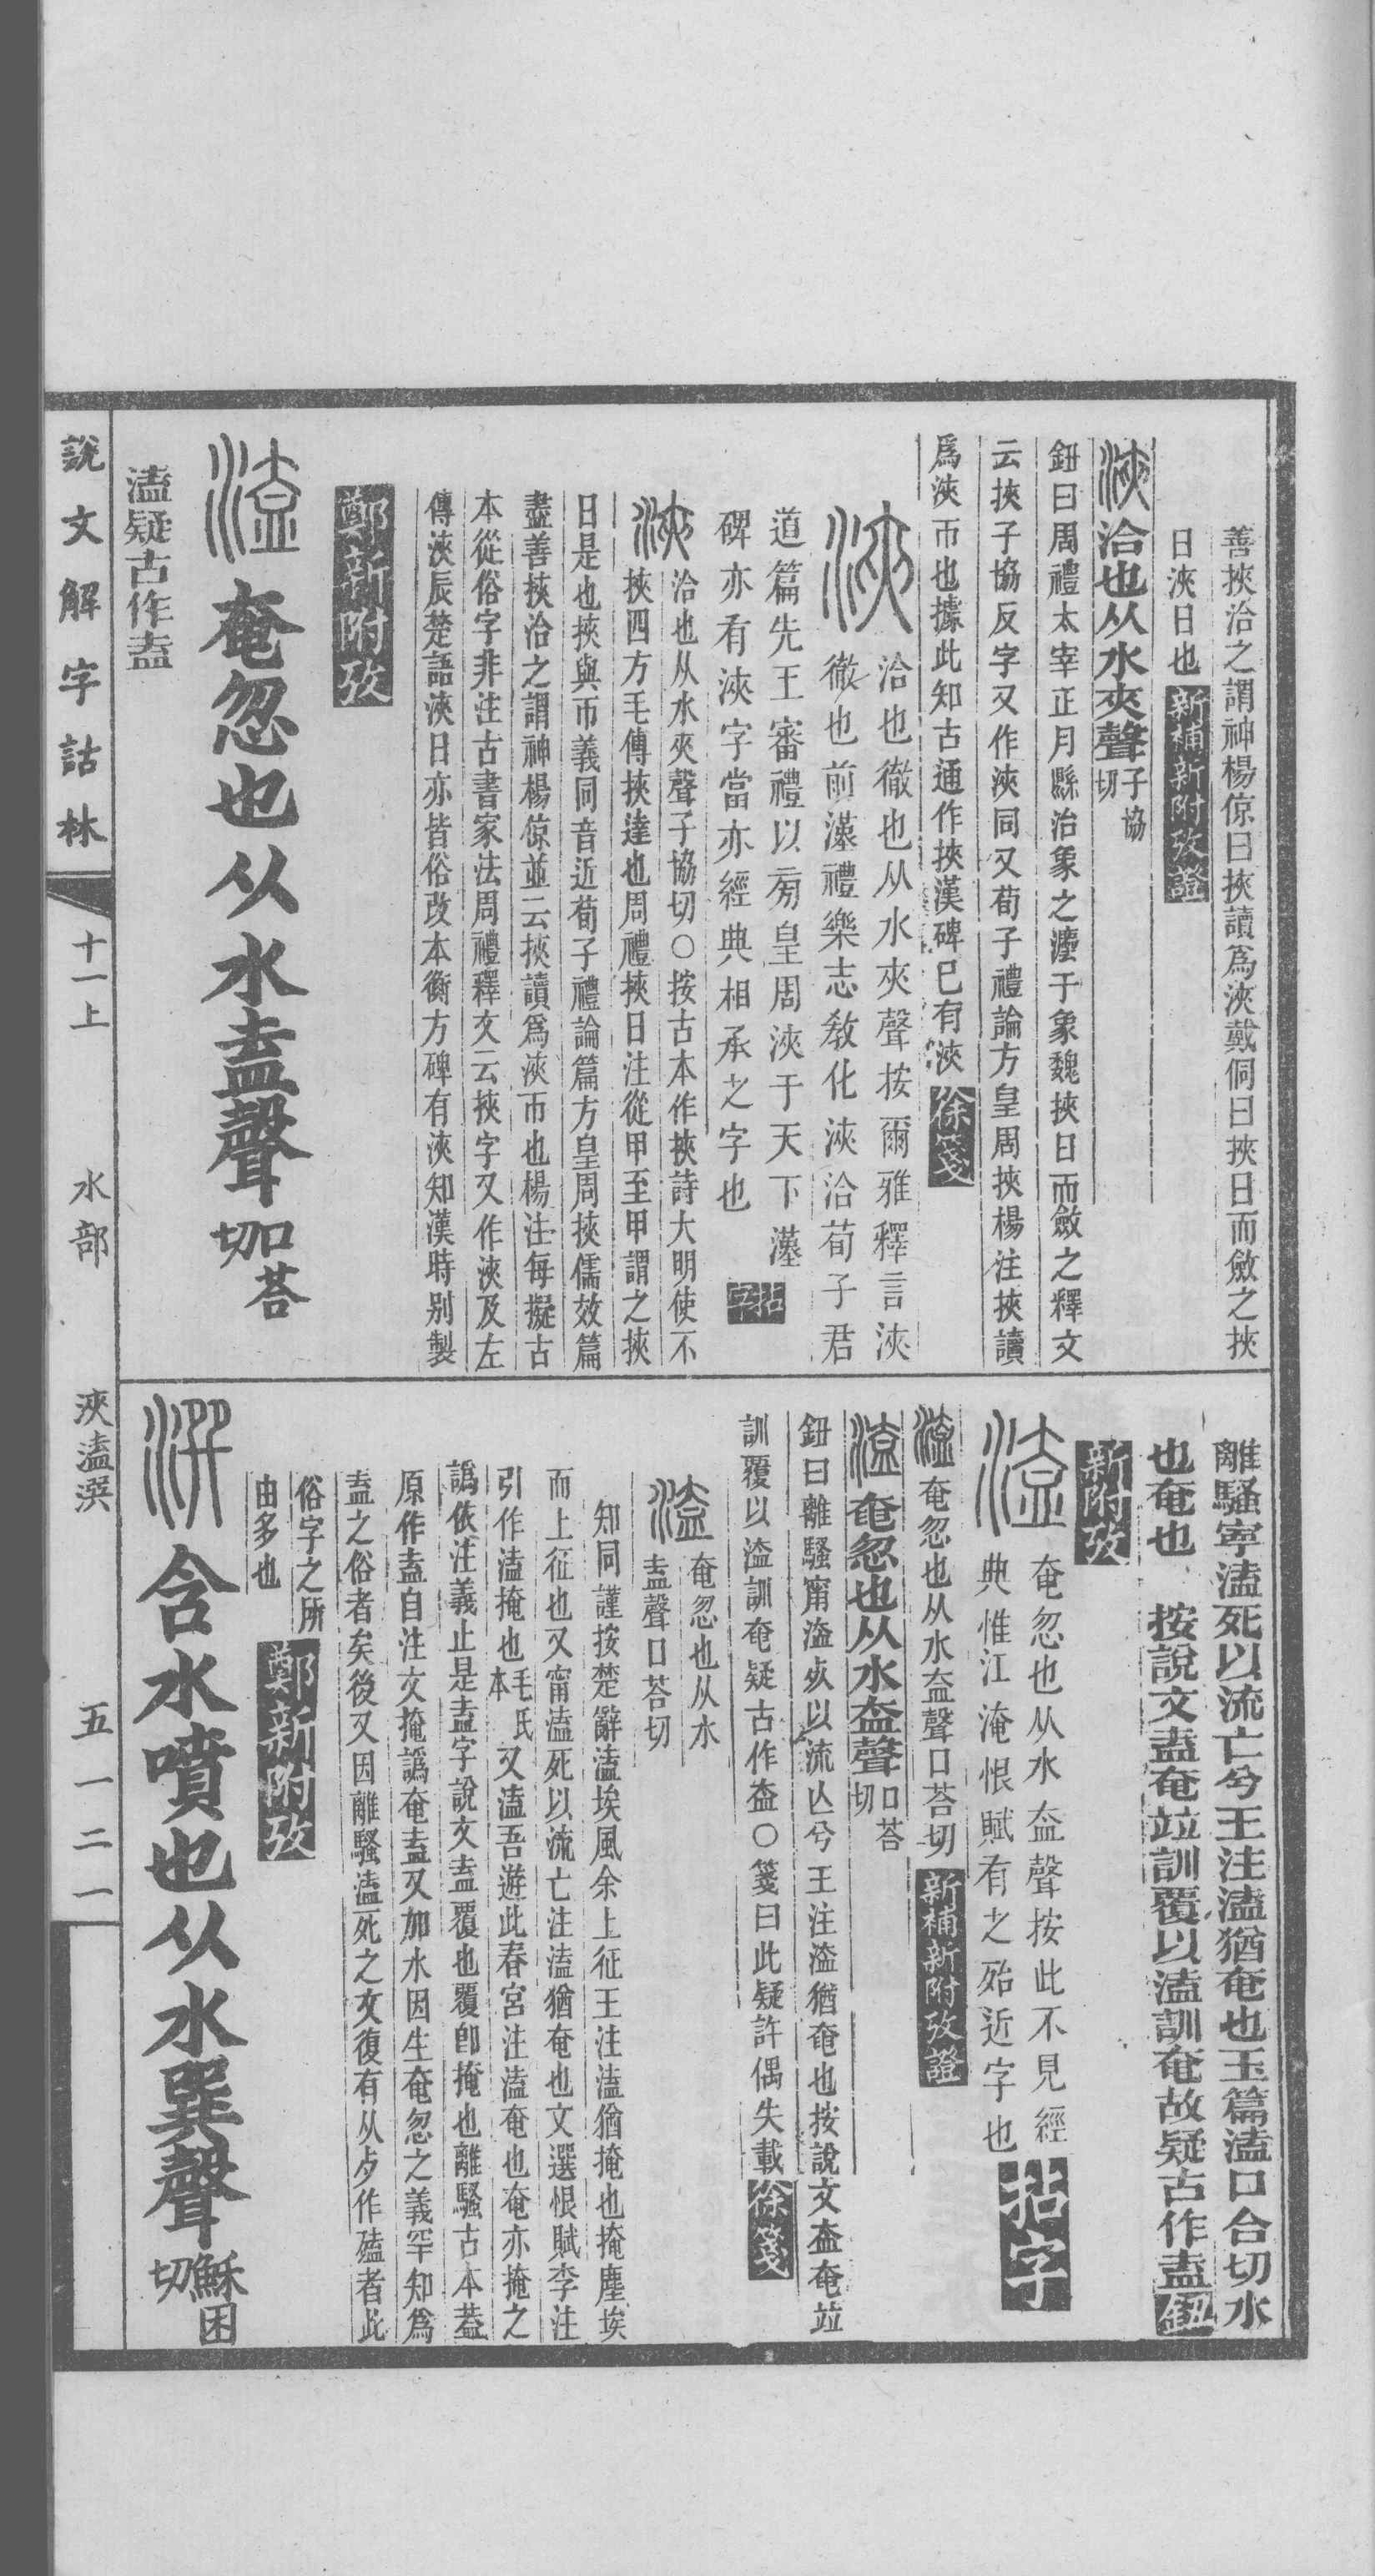 善挾洽之謂神楊倞曰挾讀爲浹戴侗曰挾日而斂之挾
日浹日也 新補新附攷證
浹 洽也从水夾聲 子協切
鈕曰周禮太宰正月縣治象之灋于象魏挾日而斂之釋文
云挾子協反字又作浹同又荀子禮論方皇周挾楊注挾讀
爲浹帀也據此知古通作挾漢碑已有浹 徐箋
浹 洽也徹也从水夾聲按爾雅釋言浹
徹也前漢禮樂志敎化浹洽荀子君
道篇先王審禮以方皇周浹于天下漢
碑亦有浹字當亦經典相承之字也 拈字
浹 洽也从水夾聲子協切○按古本作挾詩大明使不
挾四方毛傳挾達也周禮挾日注從甲至甲謂之挾
日是也挾與帀義同音近荀子禮論篇方皇周挾儒效篇
盡善挾洽之謂神楊倞並云挾讀爲浹帀也楊注每擬古
本從俗字非注古書家法周禮釋文云挾字又作浹及左
傳浹辰楚語浹日亦皆俗改本衡方碑有浹知漢時別製
鄭新附攷
溘 奄忽也从水盍聲 口荅切
溘疑古作盍
離騷寧溘死以流亡兮王注溘猶奄也玉篇溘口合切水
也奄也 按說文盍奄竝訓覆以溘訓奄故疑古作盍 鈕
新附攷
溘 奄忽也从水盇聲按此不見經
典惟江淹恨賦有之殆近字也 拈字
溘 奄忽也从水盇聲口荅切 新補新附攷證
溘 奄忽也从水盇聲 口荅切
鈕曰離騷甯溘𣦸以流亾兮王注溘猶奄也按說文盇奄竝
訓覆以溘訓奄疑古作盇○箋曰此疑許偶失載 徐箋
溘 奄忽也从水
盍聲口荅切
知同謹按楚辭溘埃風余上征王注溘猶掩也掩塵埃
而上征也又甯溘死以流亡注溘猶奄也文選恨賦李注
引作溘掩也 毛氏本 又溘吾遊此春宮注溘奄也奄亦掩之
譌依注義止是盍字說文盍覆也覆卽掩也離騷古本蓋
原作盍自注文掩譌奄盍又加水因生奄忽之義罕知爲
盍之俗者矣後又因離騷溘死之文復有从歺作㱼者此
俗字之所
由多也 鄭新附攷
潠 含水噴也从水巽聲 穌困切
說文解字詁林 十一上 水部 浹溘潠 五一二一